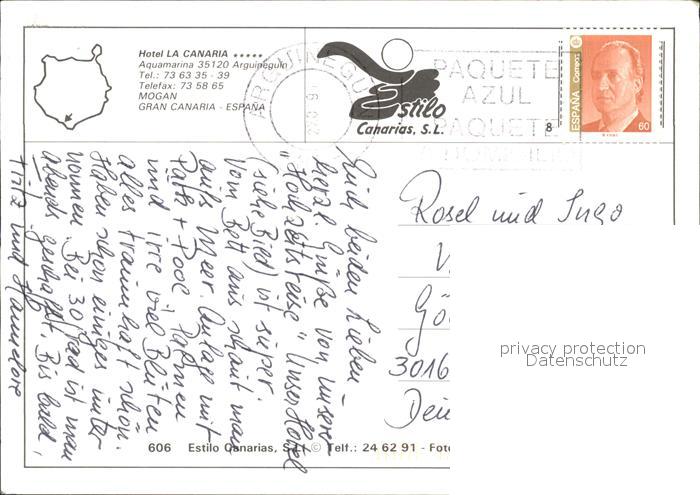 Hotel LA CANARIA *****
Aquamarina 35120 Arguineguín
Tel.: 73 63 35 - 39
Telefax: 73 58 65
MOGAN
GRAN CANARIA - ESPAÑA
Estilo
Canarias, S.L.
ARGUINEGUI
PAQUETE
AZUL
PAQUETE
A DOMICILIO
8
ESPAÑA Correos
60
Euch beiden Lieben
herzl. Grüße von unserer
"Hochzeitsreise" Unser Hotel
(siehe Bild) ist super.
Vom Bett aus schaut man
aufs Meer. Anlage mit
Palmen
und irre viel Blüten
alles traumhaft schön.
Haben schon einiges unter-
nommen. Bei 30 Grad ist man
abends geschafft. Bis bald,
Fritz und Hannelore
Rosel und Ingo
Gö
3016
privacy protection
Datenschutz
606 Estilo Canarias, S.L. © Telf.: 24 62 91 - Foto